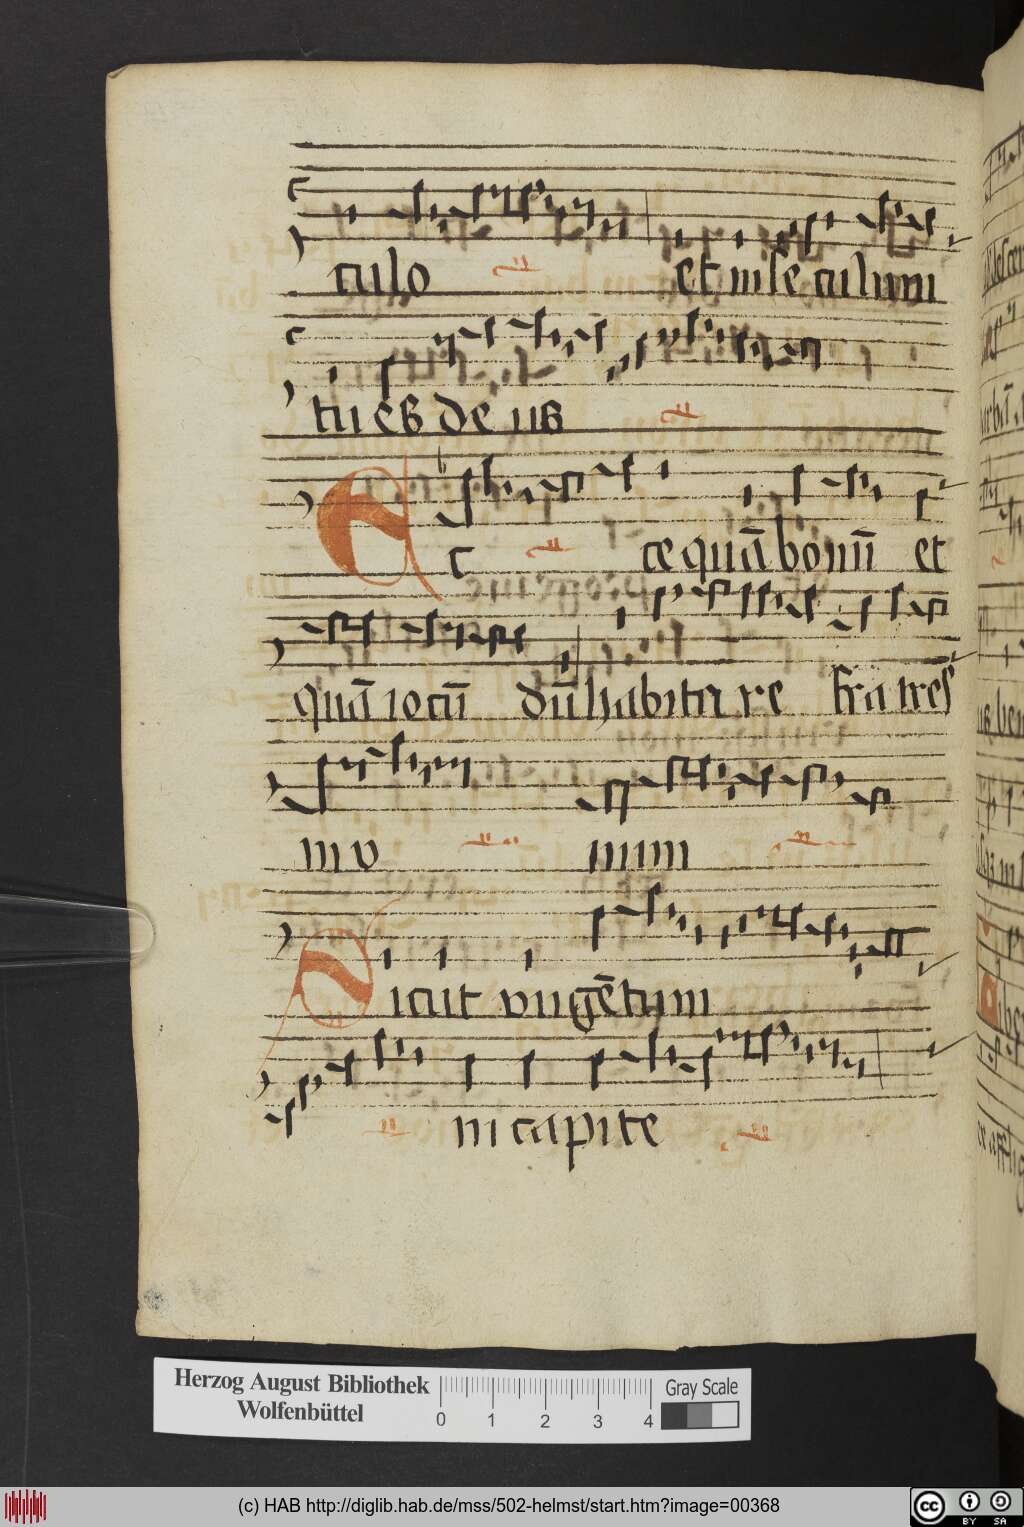 culo et in se culum
tu es de us
Ecce quā bonū et
quā iocūdū habitare fratres
in v num
Sicut vngētum
in capite
Herzog August Bibliothek
Wolfenbüttel
0 1 2 3 4
Gray Scale
(c) HAB http://diglib.hab.de/mss/502-helmst/start.htm?image=00368
cc BY SA